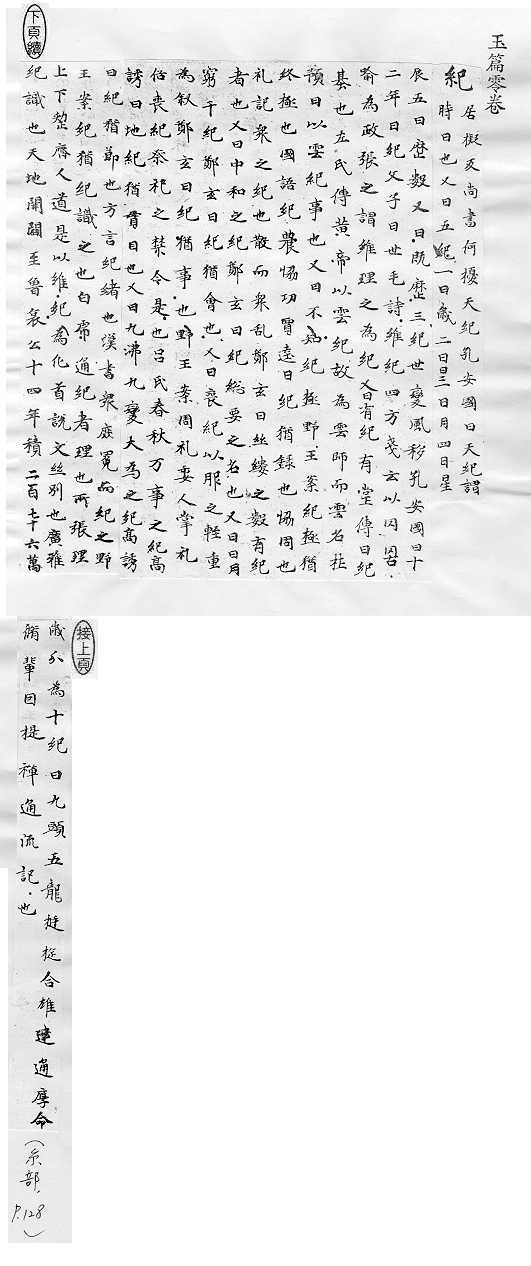 玉篇零卷
紀 居擬反尚書俶擾天紀孔安國曰天紀謂
時日也又曰五紀一曰歲二曰日三曰月四曰星
辰五曰歷數又曰既歷三紀世變風移孔安國曰十
二年曰紀父子曰世毛詩維紀四方戔云以罔罟
喻為政張之謂維理之為紀又曰有紀有堂傳曰紀
基也左氏傳黃帝以雲紀故為雲師而雲名杜
預曰以雲紀事也又曰不知紀極野王案紀極猶
終極也國語紀農協功賈逵曰紀猶錄也協同也
礼記衆之紀也散而衆乱鄭玄曰絲縷之數有紀
者也又曰中和之紀鄭玄曰紀總要之名也又曰日月
窮于紀鄭玄曰紀猶會也又曰喪紀以服之輕重
為叙鄭玄曰紀猶事也野王案周礼委人掌礼
喪紀祭祀之禁令是也呂氏春秋万事之紀高
誘曰地紀猶貫也又曰九沸九變火為之紀高誘
曰紀猶節也方言紀緒也漢書衆庶冤而紀之野
王案紀猶紀識之也白虎通紀者理也所張理
上下整齊人道是以維紀為化首說文絲別也廣雅
紀識也天地開闢至魯哀公十四年積二百七十六萬
下頁續
接上頁
歲分為十紀曰九頭五龍挺提合雄連通序命
脩輩因提禪通流記也
(糸部,P.128)